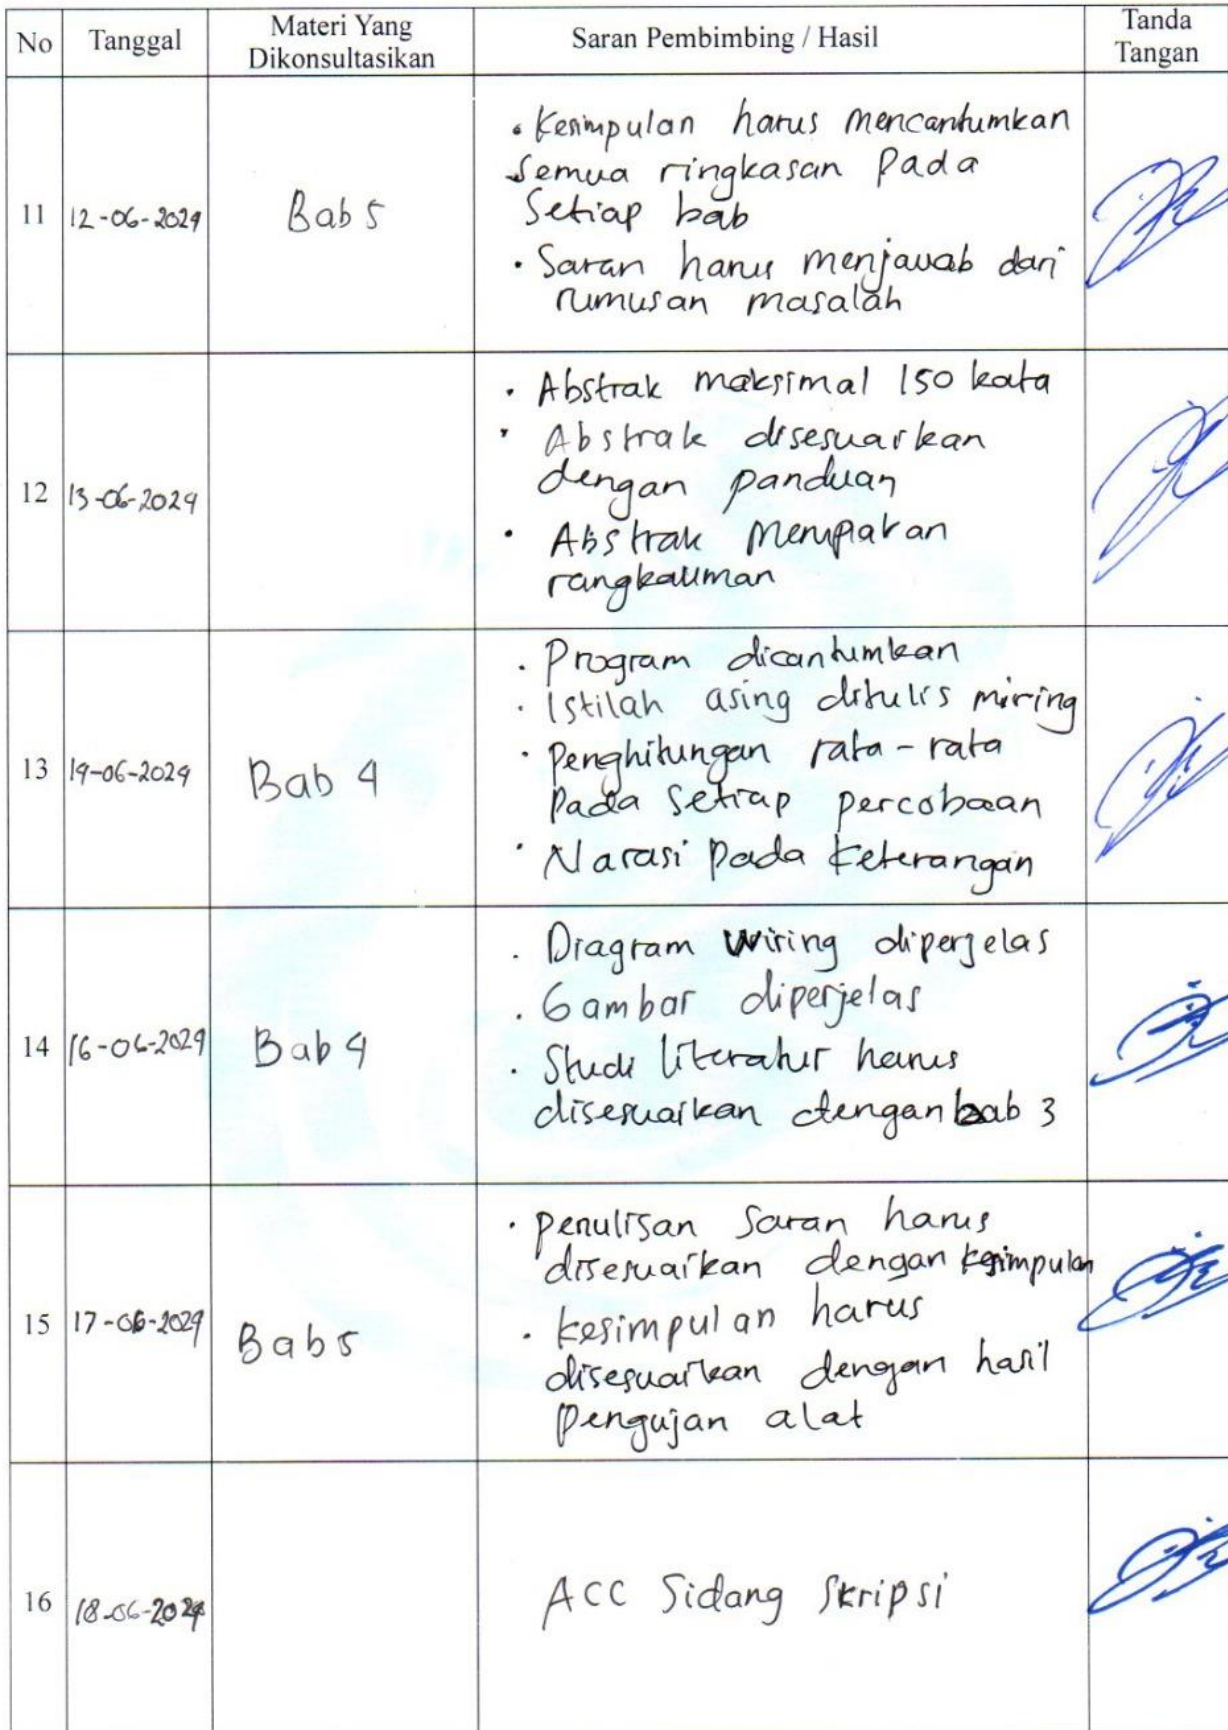 No
Tanggal
Materi Yang
Dikonsultasikan
Saran Pembimbing / Hasil
Tanda
Tangan
11
12-06-2024
Bab 5
• Kesimpulan harus mencantumkan
Semua ringkasan Pada
Setiap bab
• Saran harus menjawab dari
rumusan masalah
12
13-06-2024
• Abstrak maksimal 150 kata
• Abstrak disesuaikan
dengan panduan
• Abstrak merupakan
rangkauman
13
14-06-2024
Bab 4
• Program dicantumkan
• Istilah asing ditulis miring
• Penghitungan rata-rata
Pada Setiap percobaan
• Narasi Pada Keterangan
14
16-06-2024
Bab 4
• Diagram Wiring diperjelas
• Gambar diperjelas
• Studi literatur harus
disesuaikan dengan bab 3
15
17-06-2024
Bab 5
• Penulisan Saran harus
disesuaikan dengan kesimpulan
• Kesimpulan harus
disesuaikan dengan hasil
Pengujan alat
16
18-06-2024
ACC Sidang Skripsi